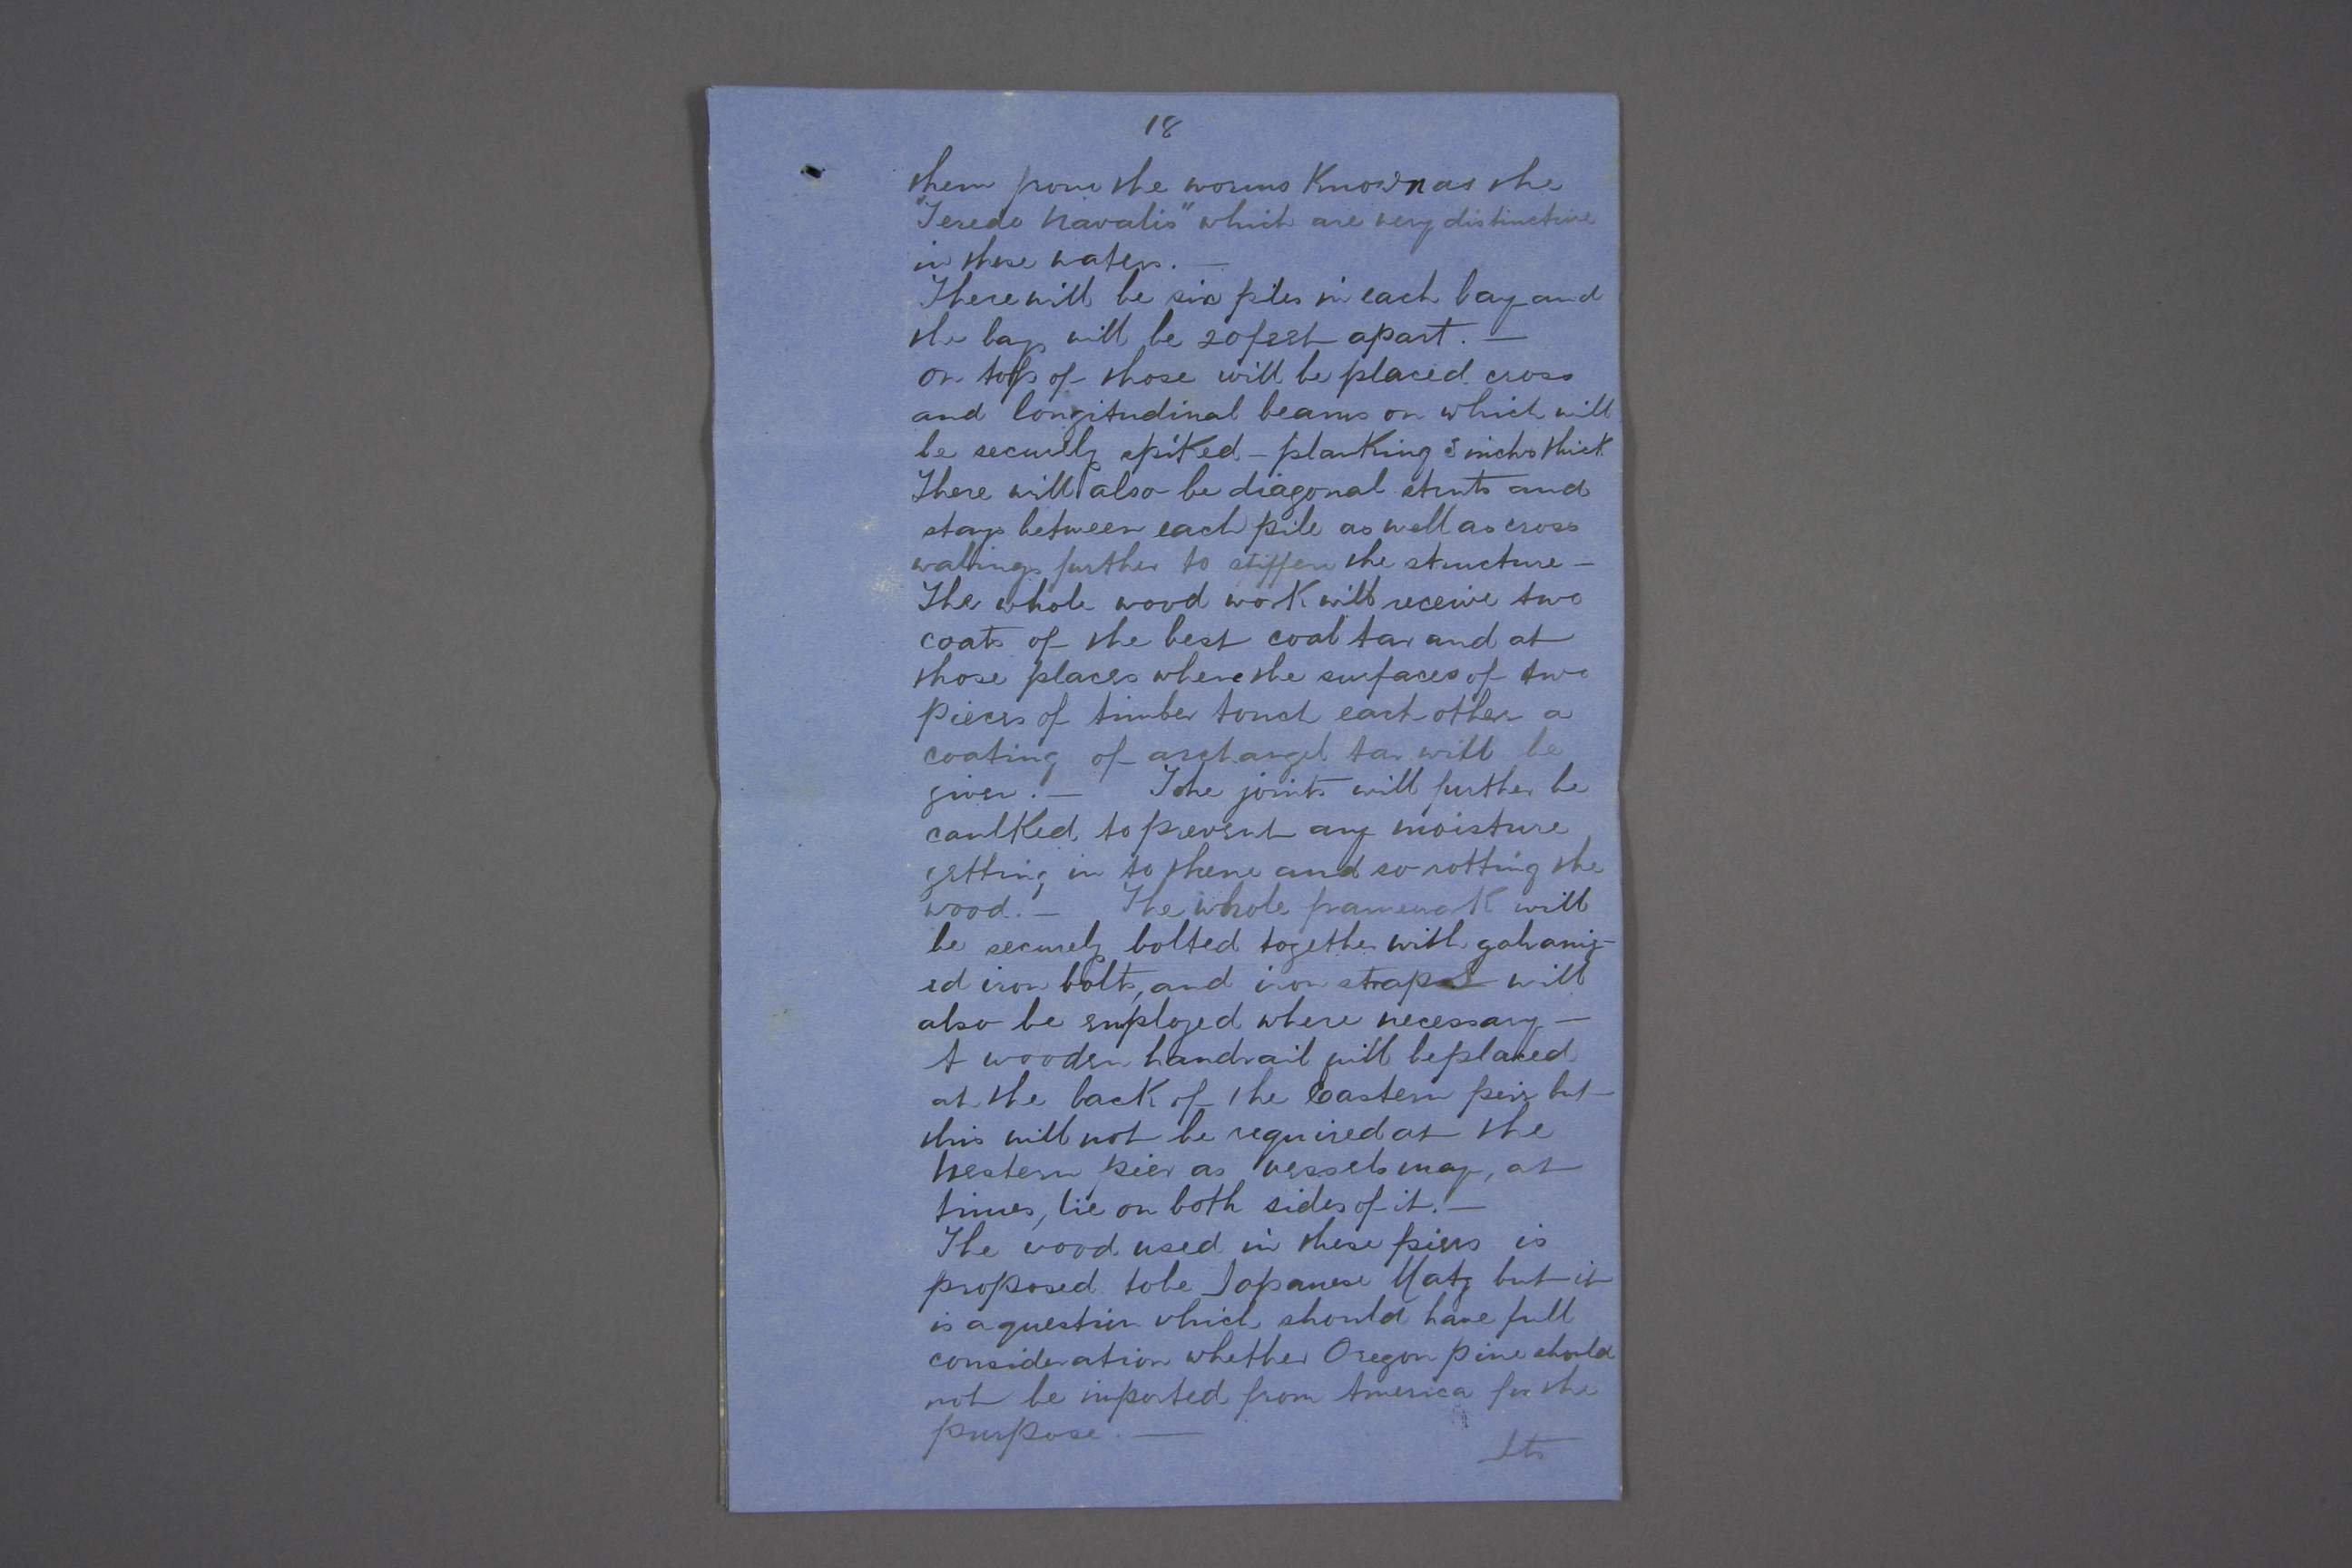 18
them from the worms Known as the
"Teredo Navalis" which are very distinctive
in these waters. —
There will be six piles in each bay and
the bays will be 20 feet apart. —
On tops of those will be placed cross
and longitudinal beams on which will
be securely spiked – planking 3 inches thick
There will also be diagonal struts and
stays between each pile as well as cross
walings further to stiffen the structure –
The whole wood work will receive two
coats of the best coal tar and at
those places where the surfaces of two
pieces of timber touch each other a
coating of archangel tar will be
given. — The joints will further be
caulked to prevent any moisture
getting in to them and so rotting the
wood. — The whole framework will
be securely bolted together with galvaniz-
ed iron bolts, and iron straps will
also be employed where necessary —
A wooden handrail will be placed
at the back of the Eastern pier but
this will not be required at the
Western pier as vessels may, at
times, lie on both sides of it. —
The wood used in these piers is
proposed to be Japanese Matz but it
is a question which should have full
consideration whether Oregon pine should
not be imported from America for the
purpose. —
Its